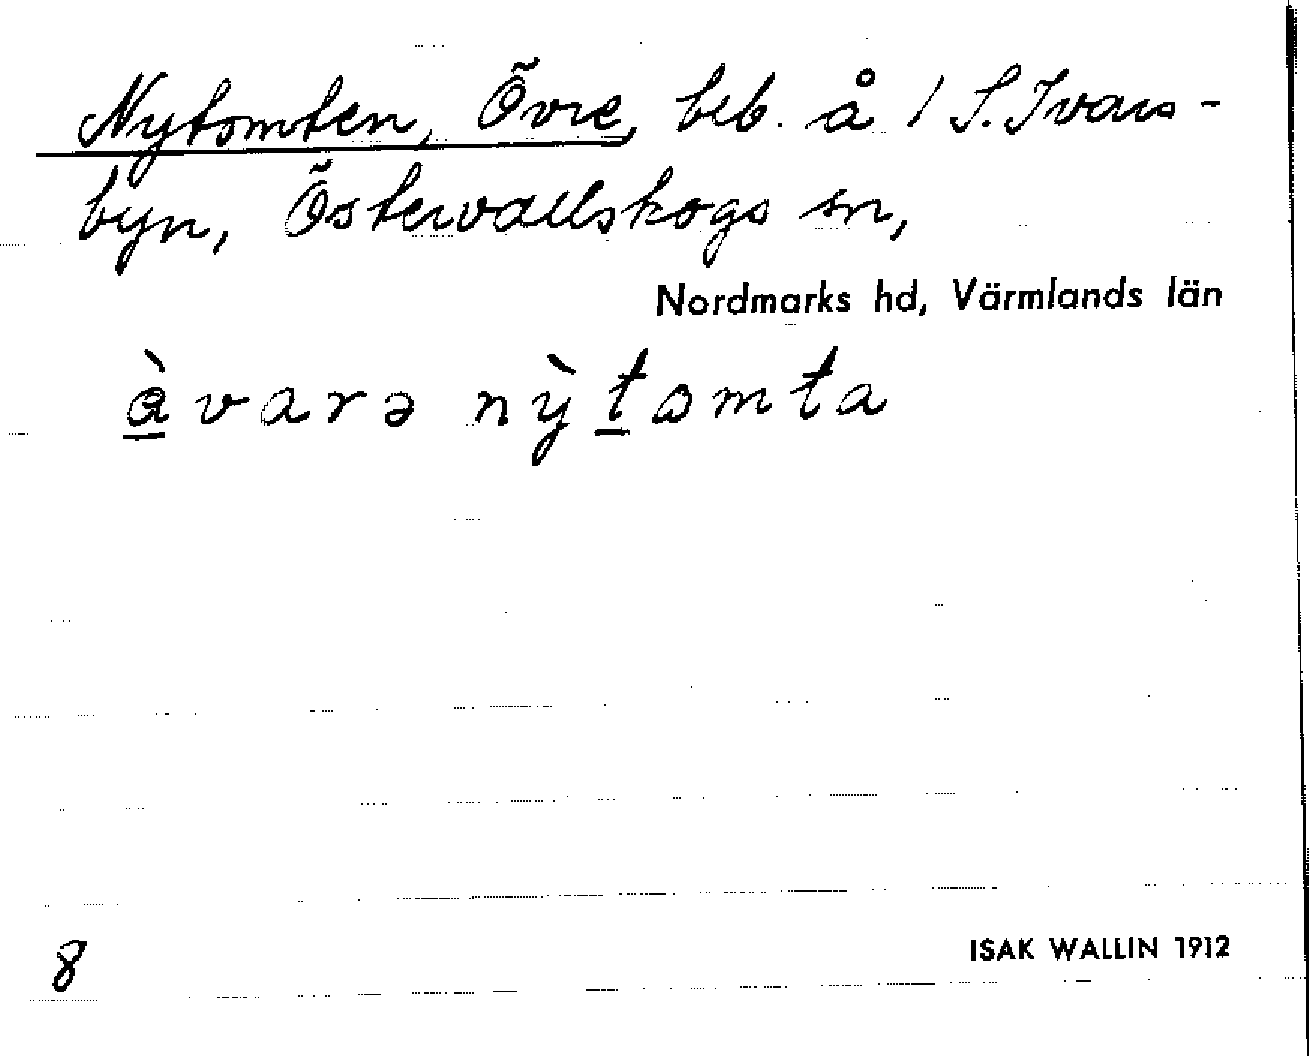 Nytomten, Övre, beb. å 1 S. Ivars-
byn, Östervallskogs sn,
Nordmarks hd, Värmlands län
àvarə nỳtsmta
8
ISAK WALLIN 1912